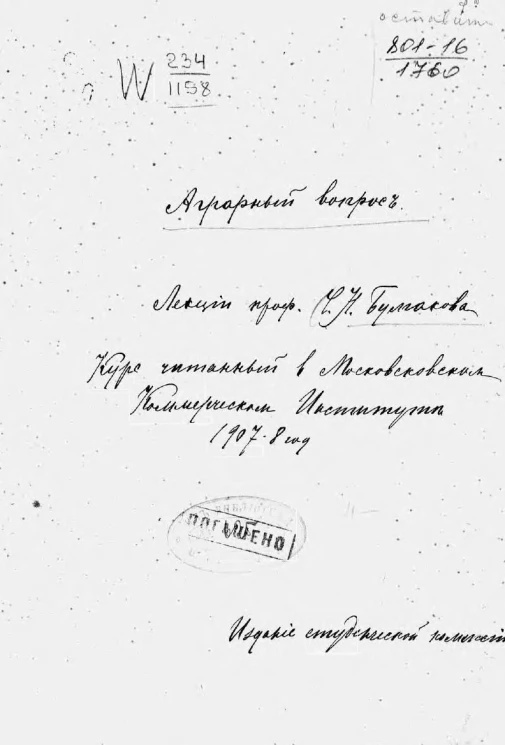 оставить
801-16
1760
W 234
1158
Аграрный вопросъ.
Лекціи проф. С. Н. Булгакова
Курс читанный в Московсковском
Коммерческом Институтѣ
1907-8 год
ПОГАШЕНО
Изданіе студенческой комиссіи